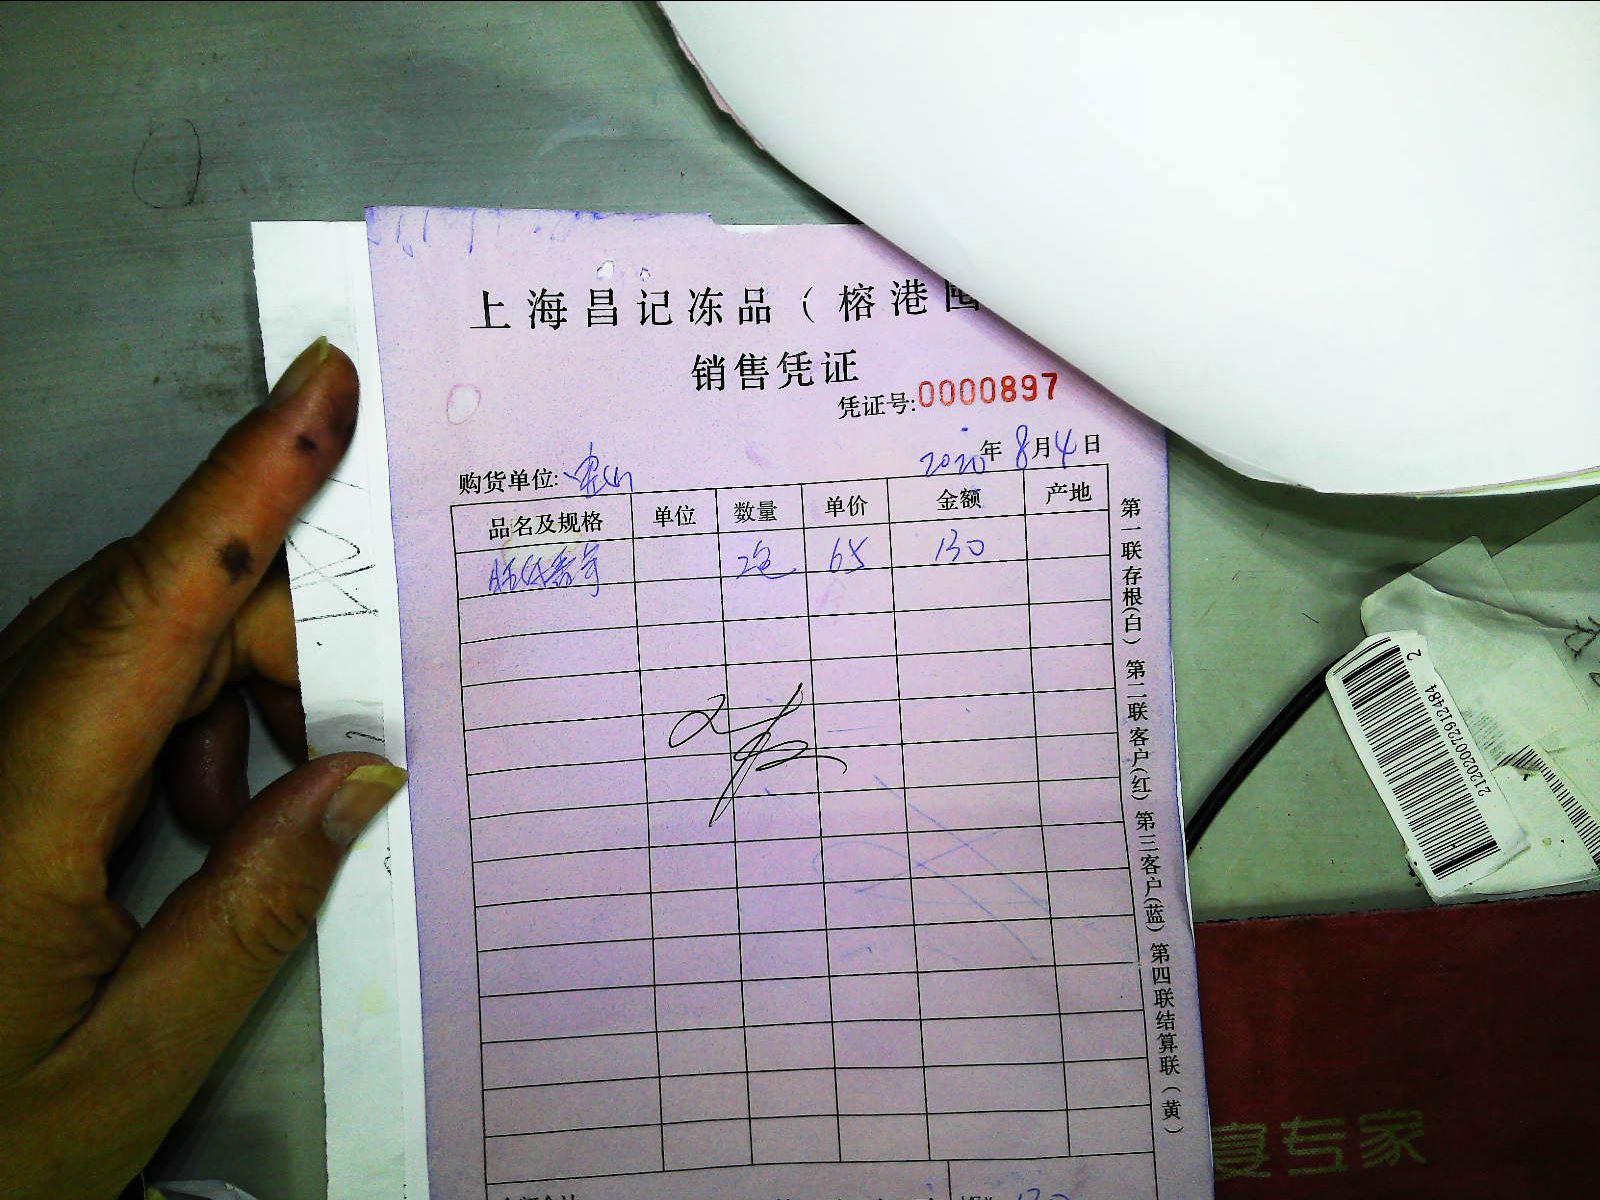 上海昌记冻品（榕港囤
销售凭证
凭证号:0000897
购货单位:宝山
2020年8月4日
品名及规格 单位 数量 单价 金额 产地
2包 65 130
第一联存根(白) 第二联客户(红) 第三客户(蓝) 第四联结算联(黄)
2120200072912484
2
专家
130